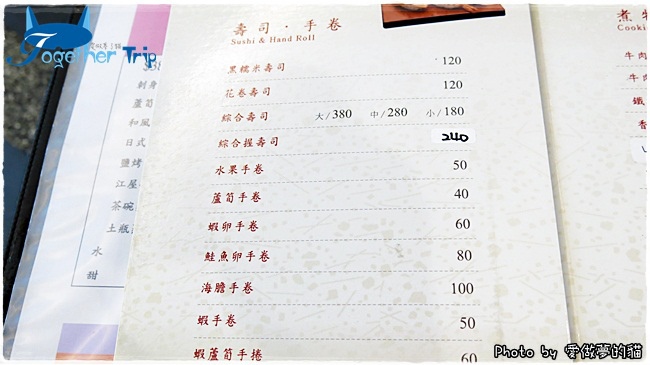 Together Trip
壽司・手卷
Sushi & Hand Roll
黑糯米壽司 120
花卷壽司 120
綜合壽司 大/380 中/280 小/180
綜合握壽司 240
水果手卷 50
蘆筍手卷 40
蝦卵手卷 60
鮭魚卵手卷 80
海膽手卷 100
蝦手卷 50
蝦蘆筍手捲 60
刺身
蘆筍
和風
日式
鹽烤
江屋
茶碗
土瓶
水
甜
煮
Cooki
牛肉
牛肉
鐵
香
Photo by 愛做夢的貓